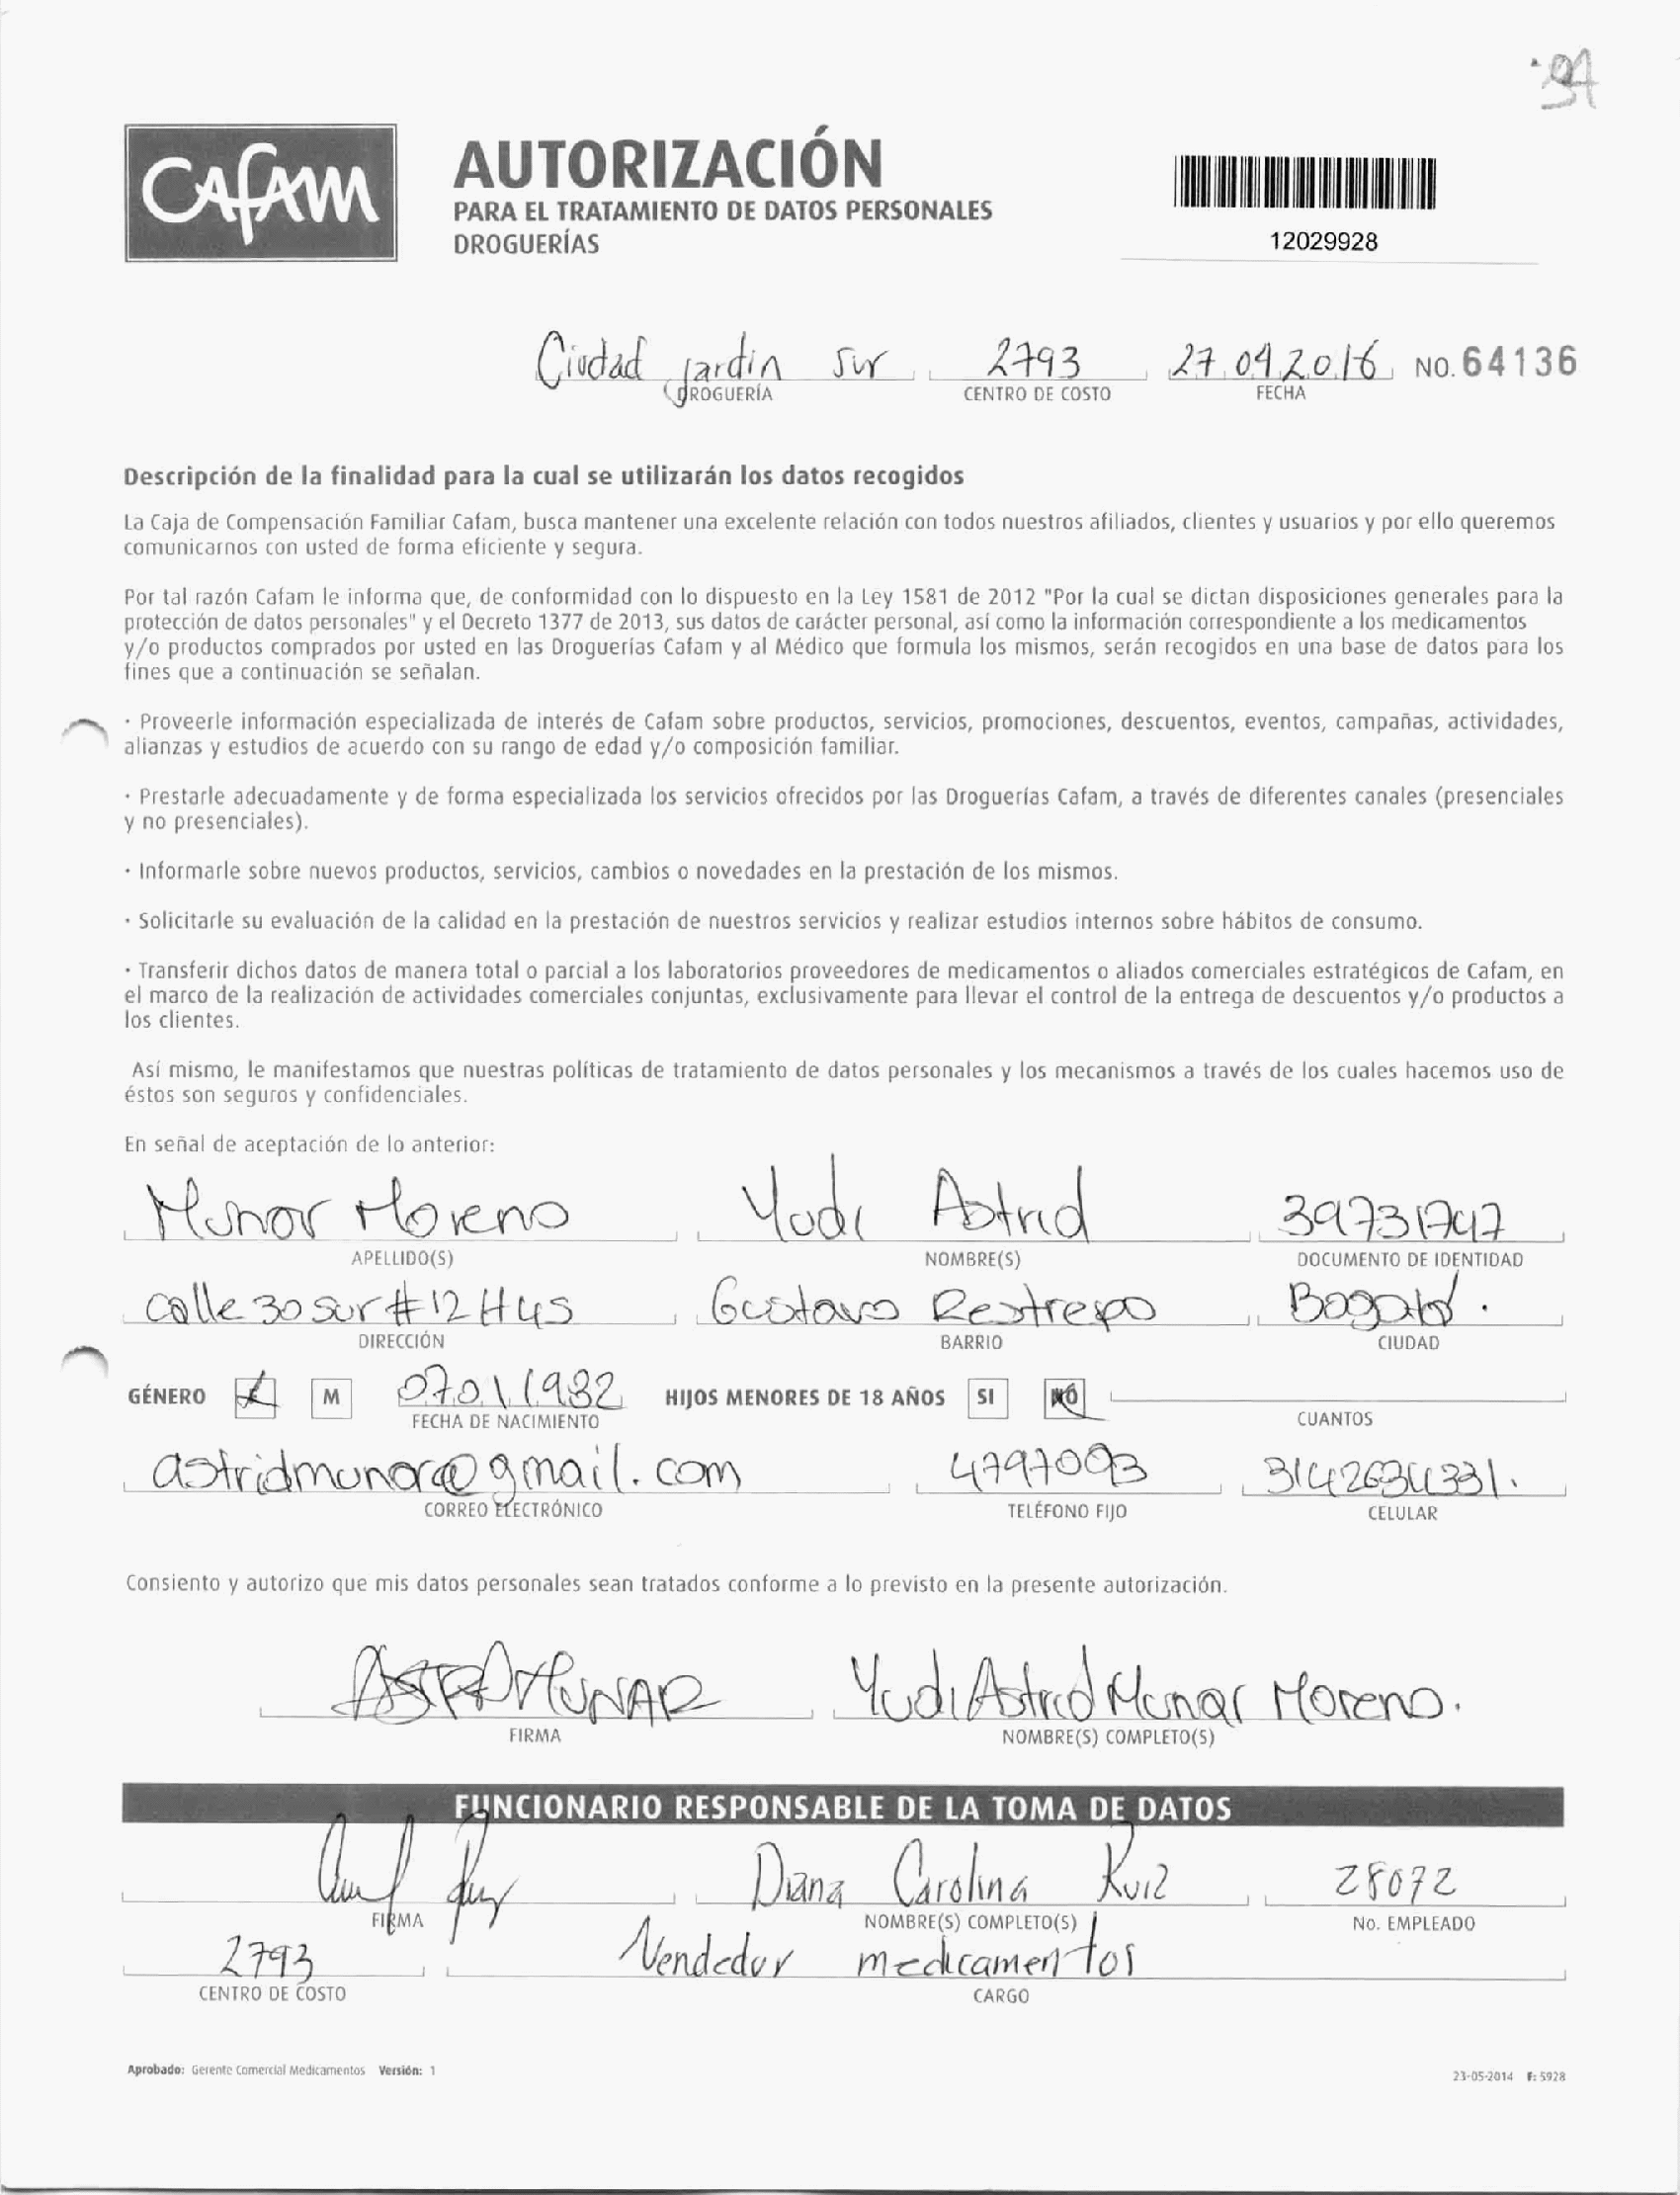 94
CAFAM
AUTORIZACIÓN
PARA EL TRATAMIENTO DE DATOS PERSONALES
DROGUERÍAS
12029928
Ciudad jardin sur 2793 27 04 2016 NO. 64136
DROGUERÍA CENTRO DE COSTO FECHA
Descripción de la finalidad para la cual se utilizarán los datos recogidos
La Caja de Compensación Familiar Cafam, busca mantener una excelente relación con todos nuestros afiliados, clientes y usuarios y por ello queremos
comunicarnos con usted de forma eficiente y segura.
Por tal razón Cafam le informa que, de conformidad con lo dispuesto en la Ley 1581 de 2012 "Por la cual se dictan disposiciones generales para la
protección de datos personales" y el Decreto 1377 de 2013, sus datos de carácter personal, así como la información correspondiente a los medicamentos
y/o productos comprados por usted en las Droguerías Cafam y al Médico que formula los mismos, serán recogidos en una base de datos para los
fines que a continuación se señalan.
· Proveerle información especializada de interés de Cafam sobre productos, servicios, promociones, descuentos, eventos, campañas, actividades,
alianzas y estudios de acuerdo con su rango de edad y/o composición familiar.
· Prestarle adecuadamente y de forma especializada los servicios ofrecidos por las Droguerías Cafam, a través de diferentes canales (presenciales
y no presenciales).
· Informarle sobre nuevos productos, servicios, cambios o novedades en la prestación de los mismos.
· Solicitarle su evaluación de la calidad en la prestación de nuestros servicios y realizar estudios internos sobre hábitos de consumo.
· Transferir dichos datos de manera total o parcial a los laboratorios proveedores de medicamentos o aliados comerciales estratégicos de Cafam, en
el marco de la realización de actividades comerciales conjuntas, exclusivamente para llevar el control de la entrega de descuentos y/o productos a
los clientes.
Así mismo, le manifestamos que nuestras políticas de tratamiento de datos personales y los mecanismos a través de los cuales hacemos uso de
éstos son seguros y confidenciales.
En señal de aceptación de lo anterior:
Munar Moreno Yudi Astrid
APELLIDO(S) NOMBRE(S) DOCUMENTO DE IDENTIDAD
calle 30 sur # 12 H 45 Gustavo Restrepo Bogotá.
DIRECCIÓN BARRIO CIUDAD
GÉNERO M 07 01 1982 HIJOS MENORES DE 18 AÑOS SI NO
FECHA DE NACIMIENTO CUANTOS
astridmunar@gmail.com 4797003 3142634331.
CORREO ELECTRÓNICO TELÉFONO FIJO CELULAR
Consiento y autorizo que mis datos personales sean tratados conforme a lo previsto en la presente autorización.
Yudi Astrid Munar Moreno.
FIRMA NOMBRE(S) COMPLETO(S)
FUNCIONARIO RESPONSABLE DE LA TOMA DE DATOS
Diana Carolina Ruiz 28072
FIRMA NOMBRE(S) COMPLETO(S) No. EMPLEADO
2793 Vendedor medicamentos
CENTRO DE COSTO CARGO
Aprobado: Gerente Comercial Medicamentos Versión: 1 23-05-2014 F: 5928